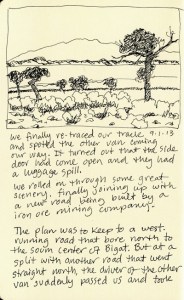 We finally re-traced our tracks 9.1.13
and spotted the other van coming
our way. It turned out that the side
door had come open and they had
a luggage spill.
We rolled on through some great
scenery, finally joining up with
a new road being built by a
iron ore mining company.
The plan was to keep to a west-
running road that bore north to
the soum center of Bigat. But at a
split with another road that went
straight north the driver of the other
van suddenly passed us and took